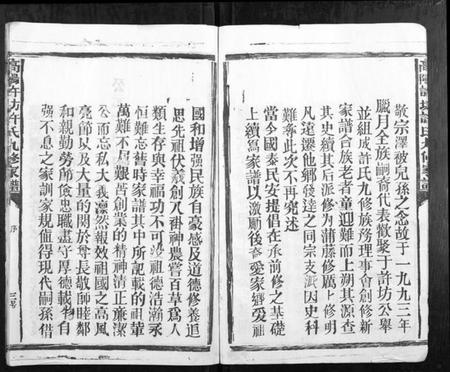 敬宗澤被兒孫之念故于一九九三年
臘月全族嗣裔代表徵聚于許坊公舉
並組成許氏九修族務理事會創修新
家譜合族老者童迎難而上朔其源查
其史續其后派修為蒲藤修厲上修明
凡遠遷他鄉發達之同宗支派因史科
難奉此次不再冗述
當今國泰民安提倡在承前修之基礎
上續寫家譜以激勵後泰愛家鄉愛祖
國和增强民族自豪感及道德修養追
思先祖伏羲創八卦神農嘗百草為人
類生存與幸福功不可 祖德浩瀚永
恒難忘舊時家譜其中所記載的祖輩
萬難不屈艱苦創業的精神清正廉潔
公而忘私大義凛然報效祖國之高風
亮節以及大量的関於尊長敬師睦鄰
和親勤勞儉忠職盡守厚德載物自
强不息之家訓家規值得現代嗣孫借
高陽許坊許氏九修家譜
序